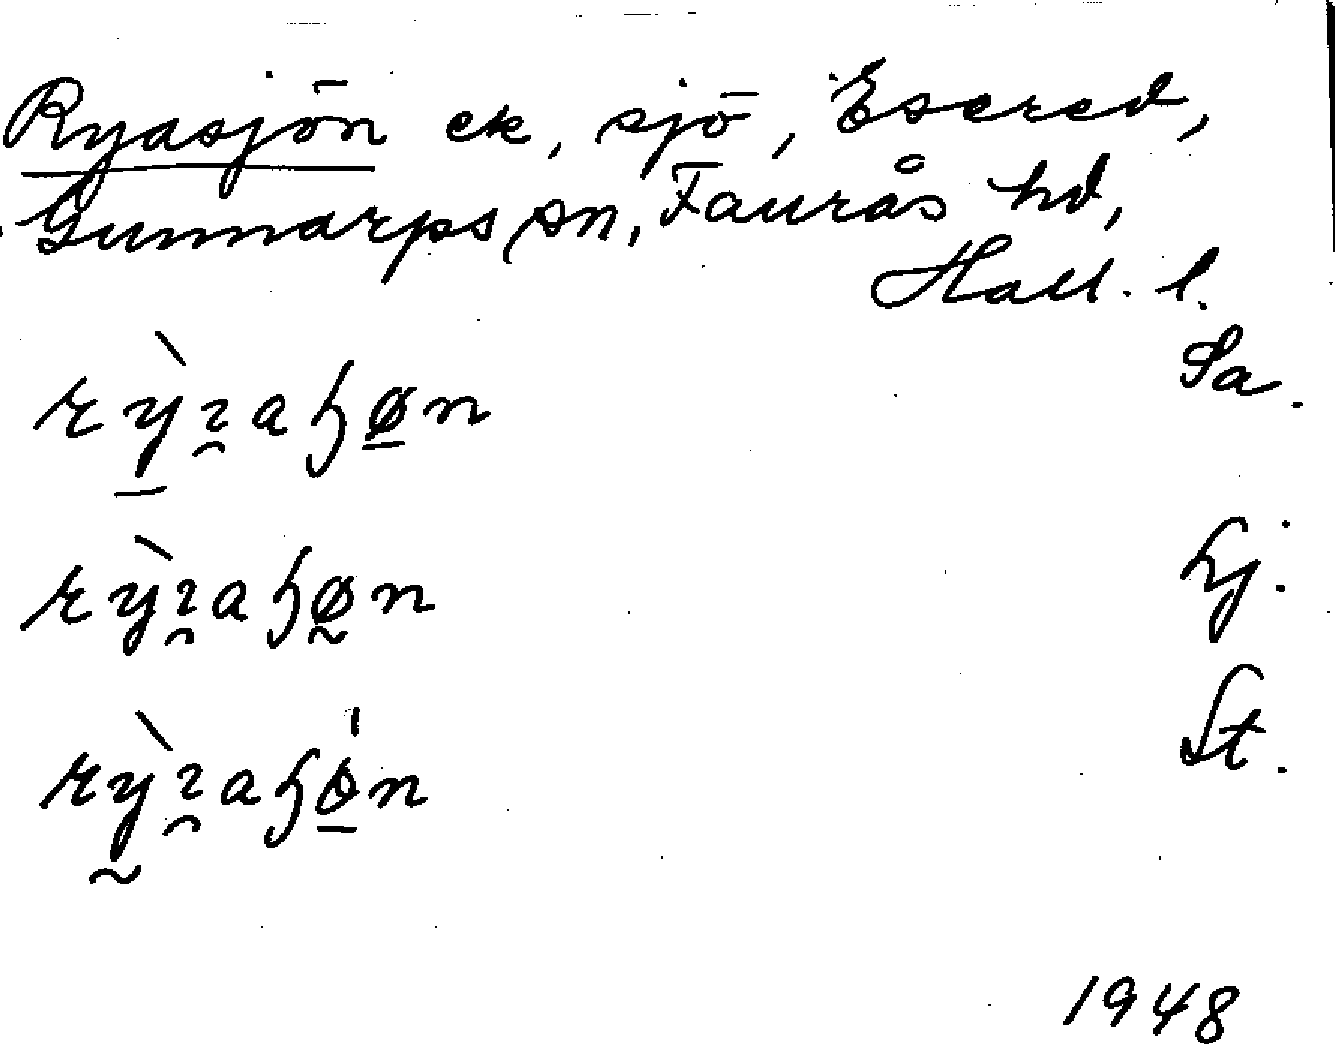 Ryasjön ek, sjö, Esered,
Gunnarps sn, Faurås hd,
Hall. l.
Sa.
rỳɿ̯aɧøn
Lj.
rỳɿ̯aɧø̰n
St.
rỳ̰ɿ̯aɧø̍n
1948